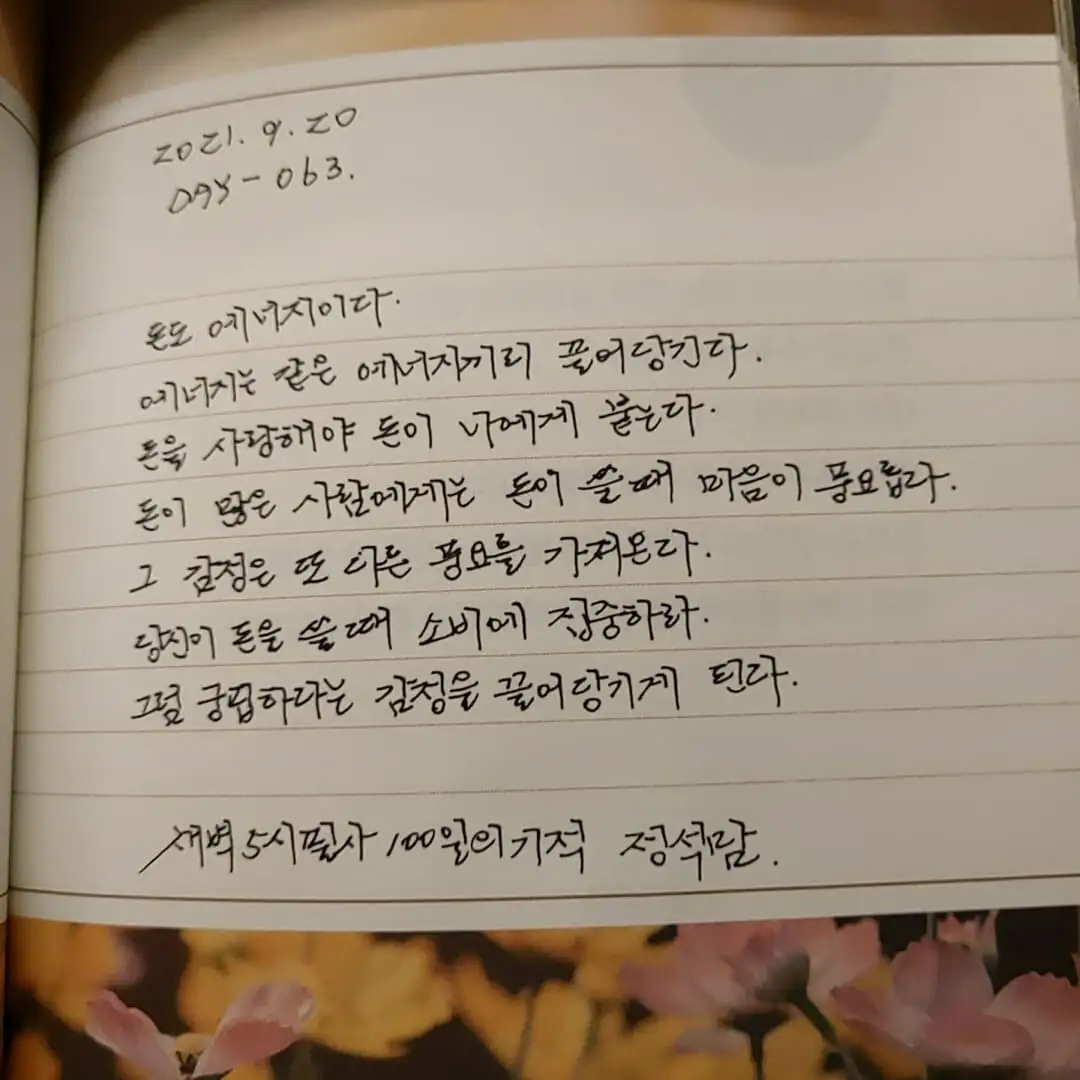 2021. 9. 20
DAY - 063.
돈도 에너지이다.
에너지는 같은 에너지끼리 끌어당긴다.
돈을 사랑해야 돈이 나에게 붙는다.
돈이 많은 사람에게는 돈이 쓸때 마음이 풍요롭다.
그 감정은 또 다른 풍요를 가져온다.
당신이 돈을 쓸때 소비에 집중하라.
그럼 궁핍하다는 감정을 끌어당기게 된다.
새벽5시필사 100일의기적 정석맘.